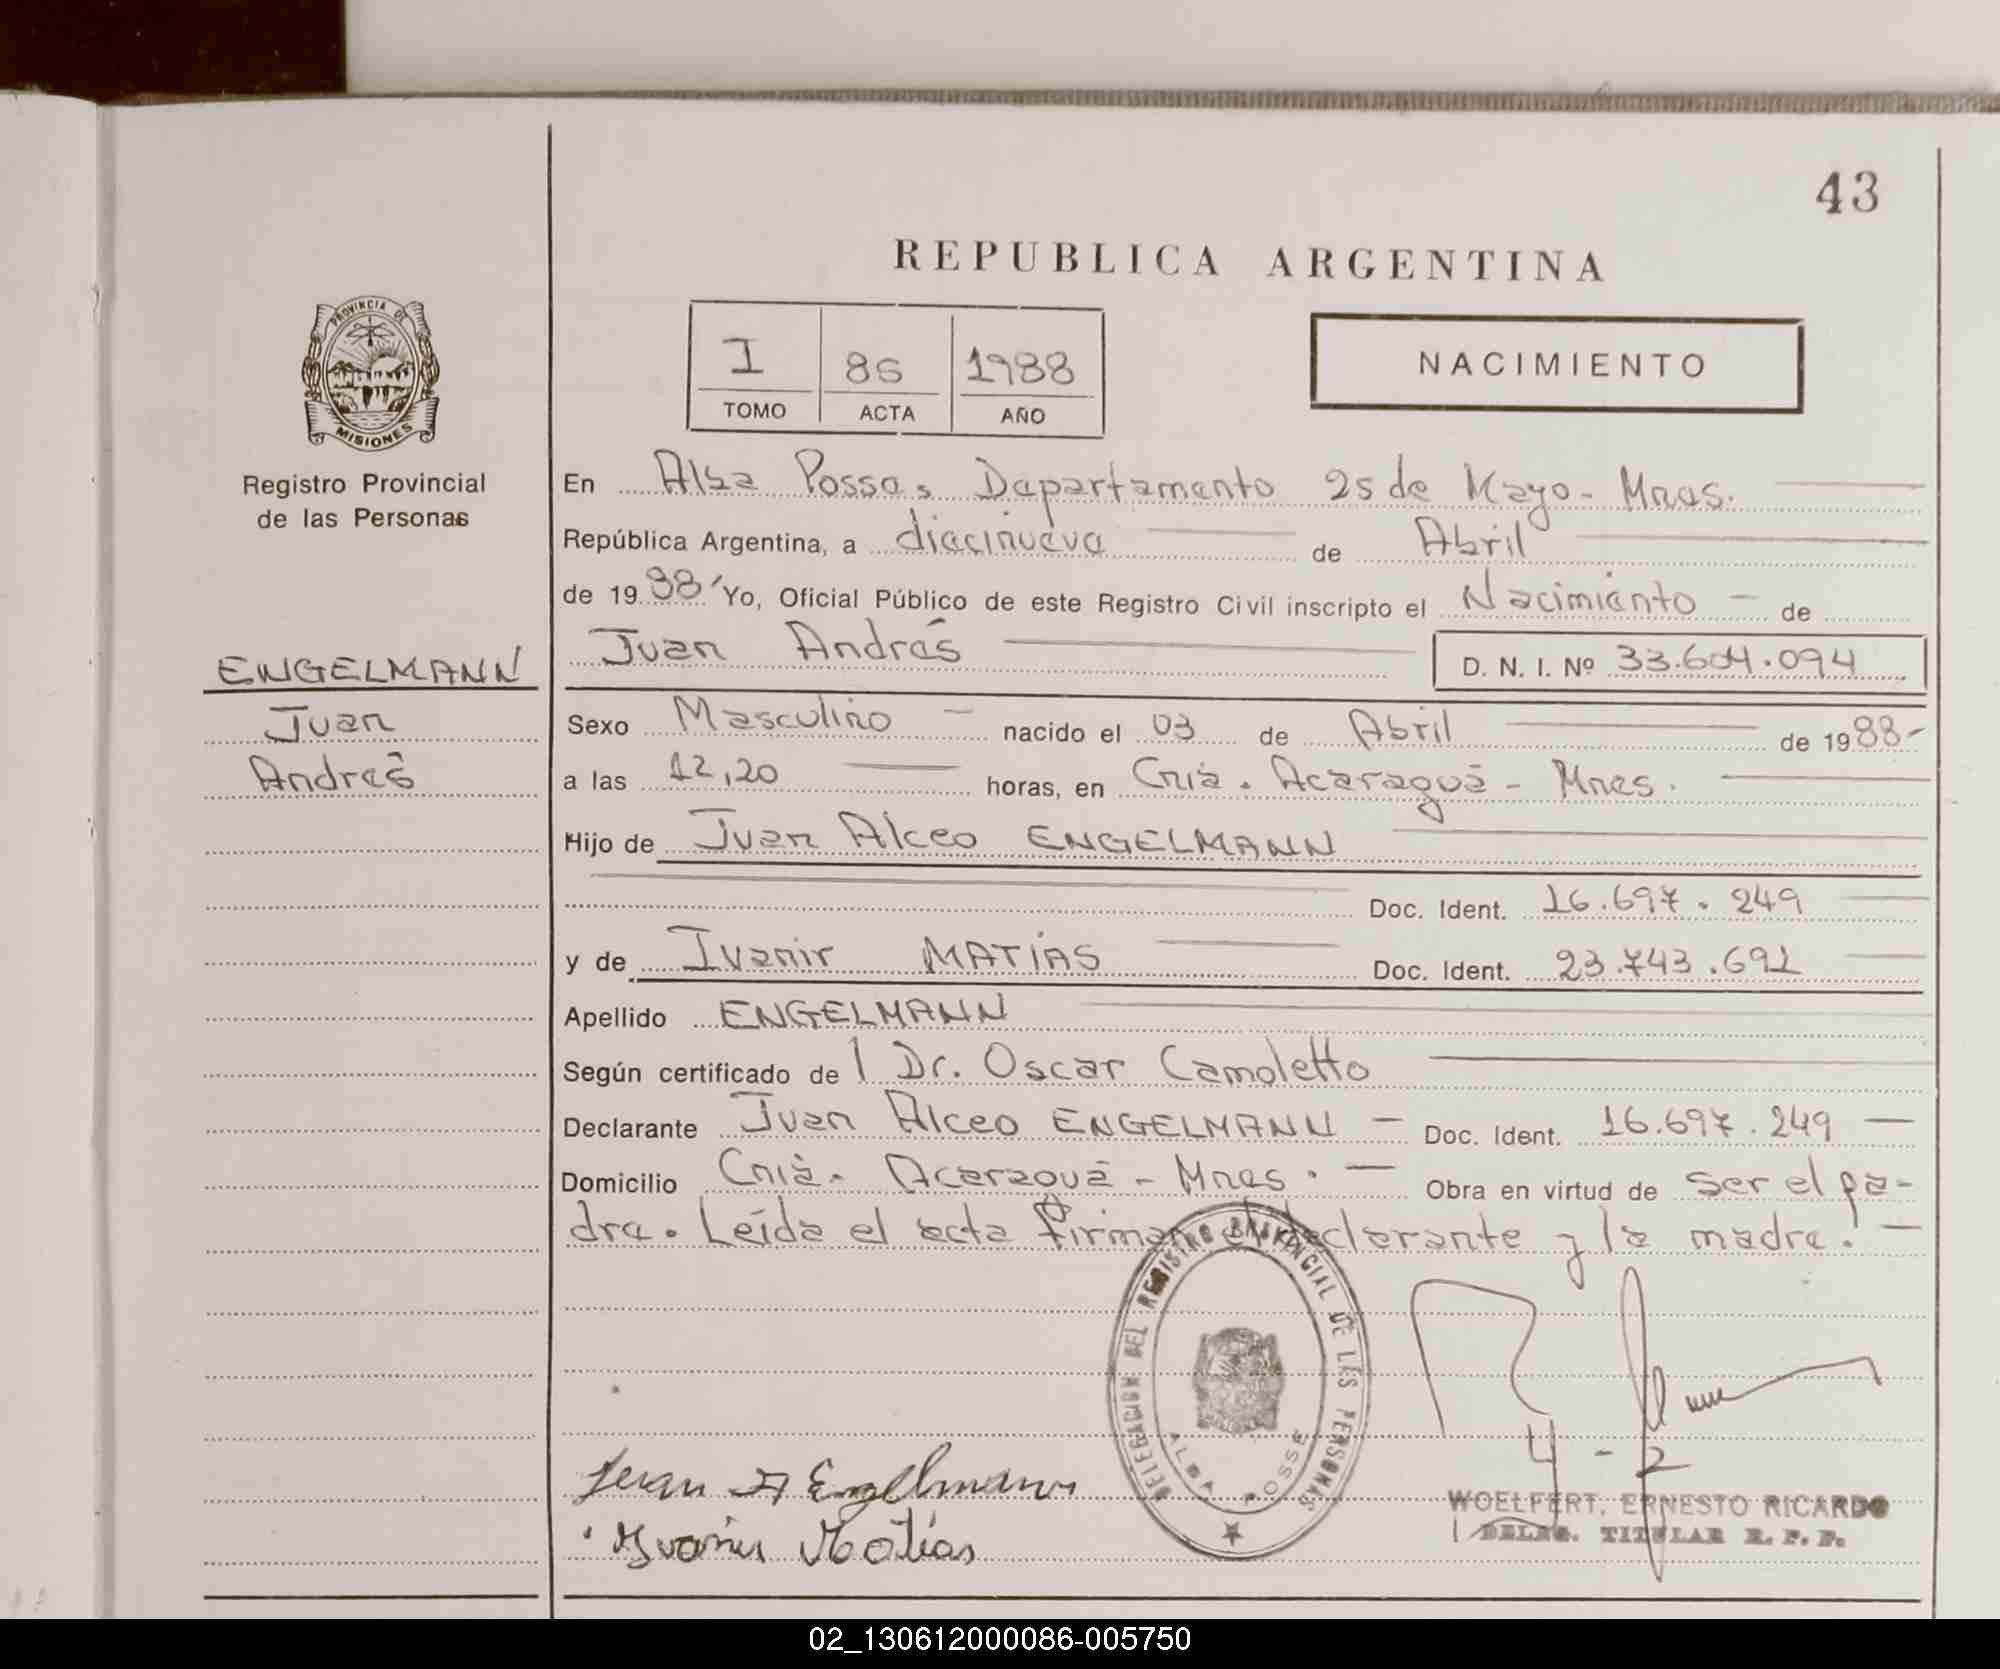 43
REPUBLICA ARGENTINA
I 86 1988
TOMO ACTA AÑO
NACIMIENTO
PROVINCIA DE
MISIONES
Registro Provincial
de las Personas
En Alba Posse, Departamento 25 de Mayo - Mnes.
República Argentina, a diecinueve de Abril
de 19 88 Yo, Oficial Público de este Registro Civil inscripto el Nacimiento - de
Juan Andrés D. N. I. Nº 33.604.094
ENGELMANN
Juan
Andrés
Sexo Masculino - nacido el 03 de Abril de 19 88-
a las 12,20 horas, en Cnia. Acaraguá - Mnes.
Hijo de Juan Alceo ENGELMANN
Doc. Ident. 16.697.249
y de Ivanir MATÍAS Doc. Ident. 23.743.691
Apellido ENGELMANN
Según certificado de l Dr. Oscar Camoletto
Declarante Juan Alceo ENGELMANN - Doc. Ident. 16.697.249 -
Domicilio Cnia. Acaraguá - Mnes. - Obra en virtud de ser el pa-
dre. Leída el acta firman el declarante y la madre. -
DELEGACION DEL REGISTRO PROVINCIAL DE LAS PERSONAS
ALBA POSSE
Juan A Engelmann
Ivanir Matias
WOELFERT, ERNESTO RICARDO
DELEG. TITULAR R. P. P.
02_130612000086-005750